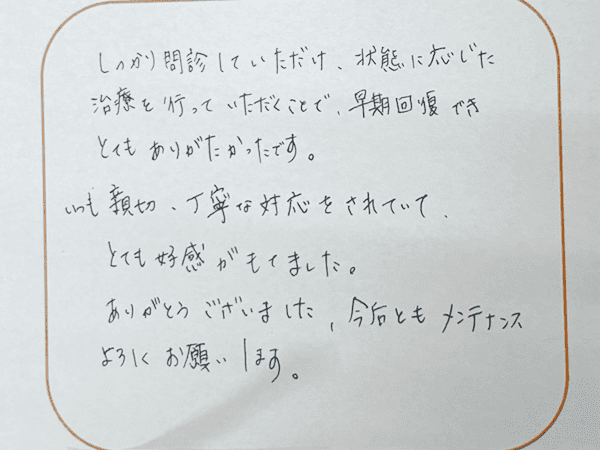 しっかり問診していただけ、状態に応じた
治療を行っていただくことで、早期回復でき
とてもありがたかったです。
いつも親切、丁寧な対応をされていて、
とても好感がもてました。
ありがとうございました、今后ともメンテナンス
よろしくお願いします。